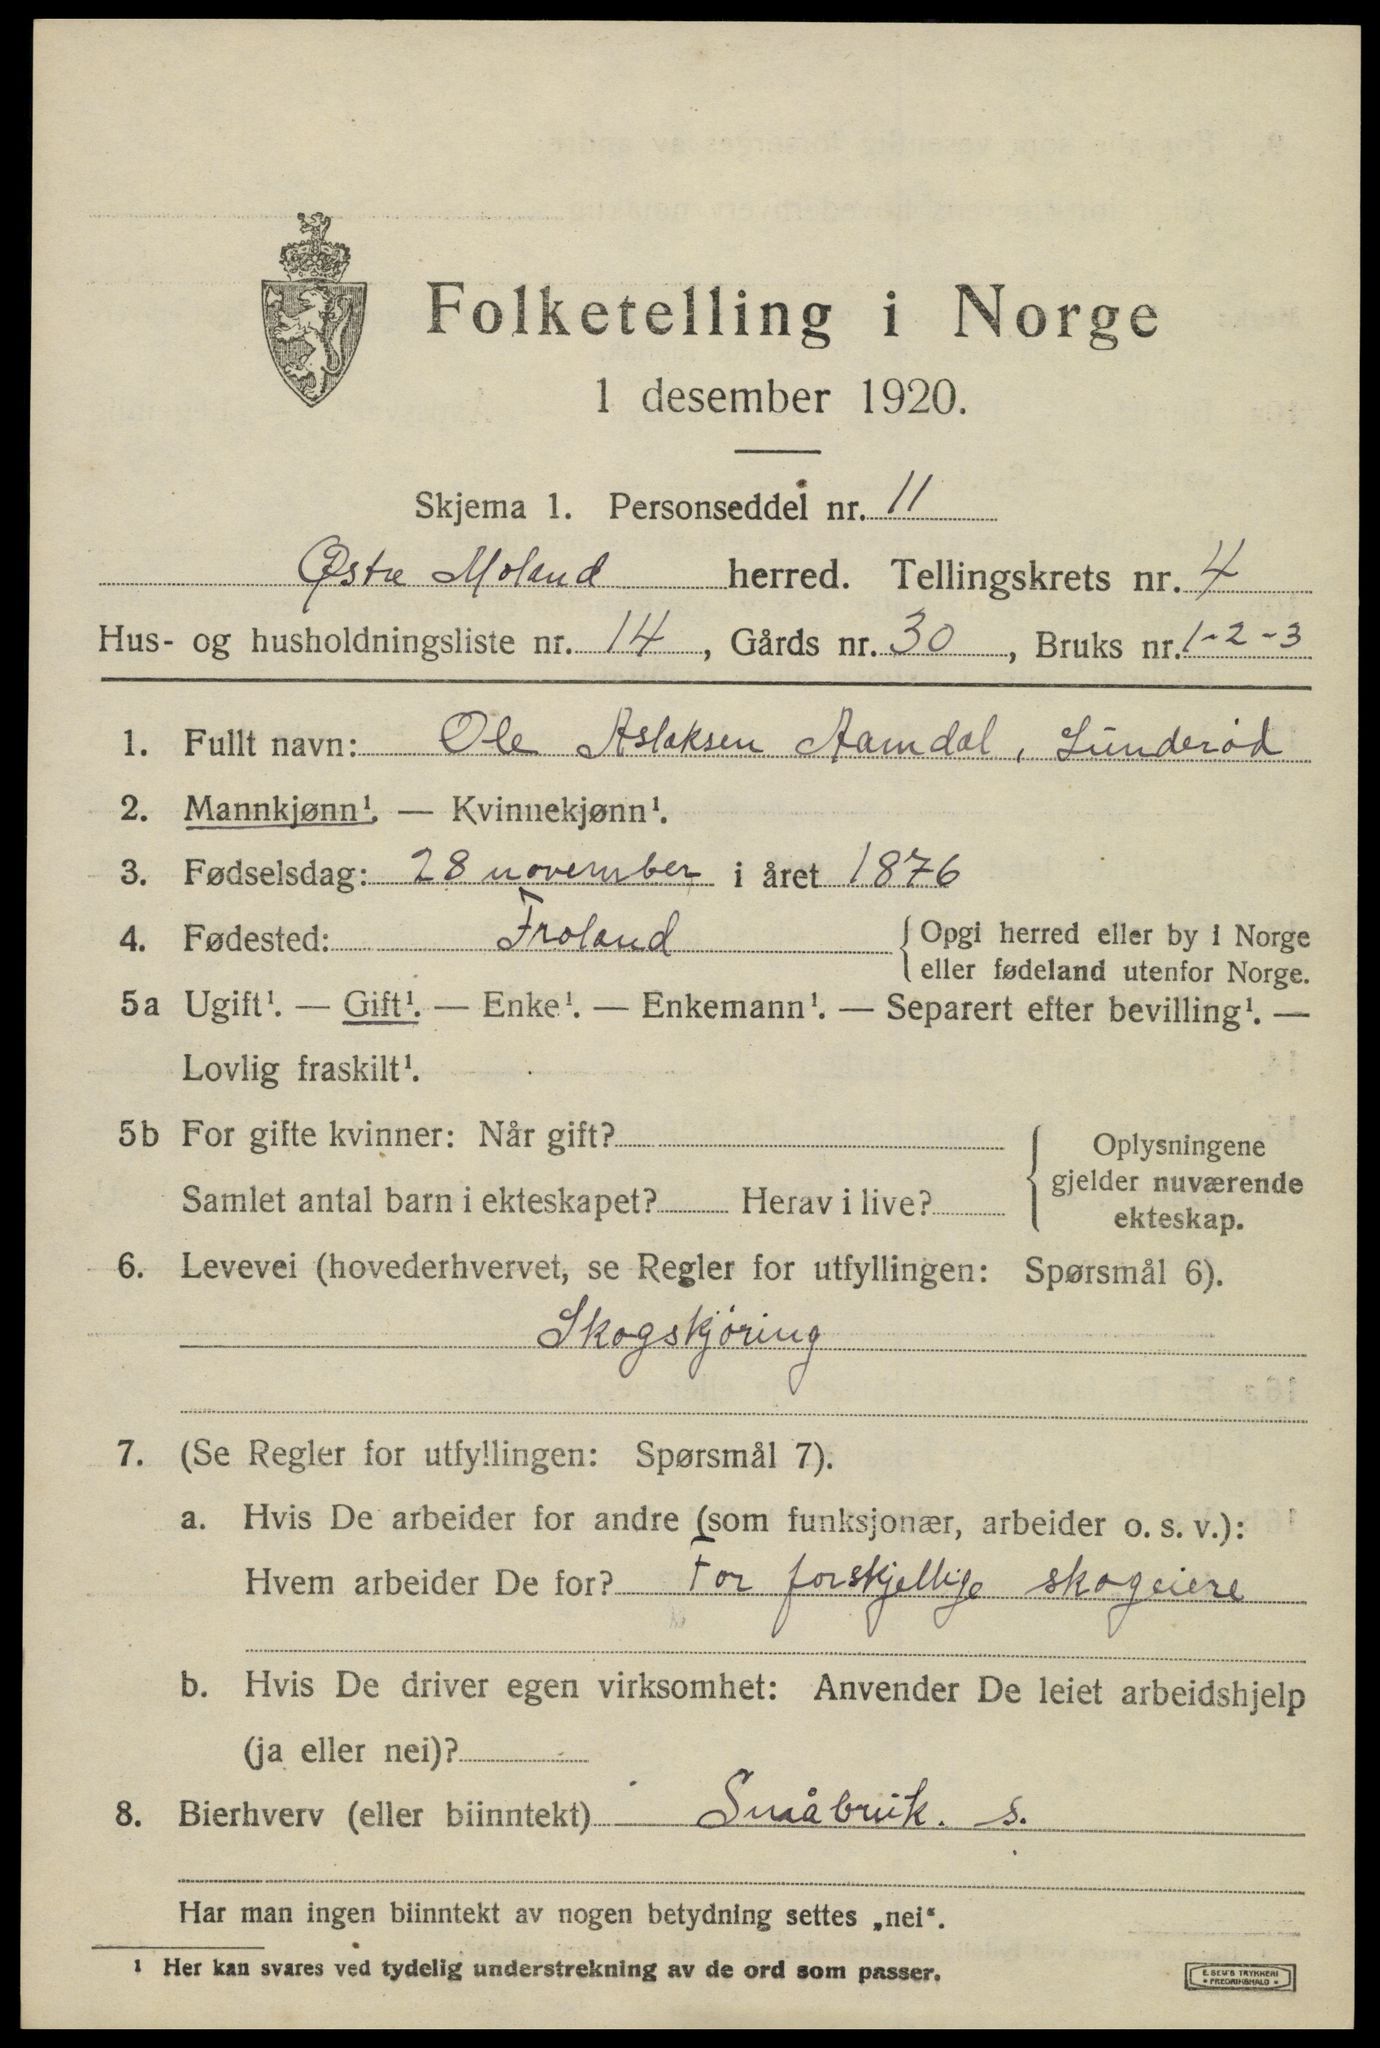 Folketelling i Norge
1 desember 1920.
Skjema 1. Personseddel nr. 11
Østre Moland herred. Tellingskrets nr. 4
Hus- og husholdningsliste nr. 14, Gårds nr. 30, Bruks nr. 1-2-3
1. Fullt navn: Ole Aslaksen Aamdal, Lunderød
2. Mannkjønn¹. — Kvinnekjønn¹.
3. Fødselsdag: 28 november i året 1876
4. Fødested: Froland { Opgi herred eller by i Norge
eller fødeland utenfor Norge.
5a Ugift¹. — Gift¹. — Enke¹. — Enkemann¹. — Separert efter bevilling¹. —
Lovlig fraskilt¹.
5b For gifte kvinner: Når gift?
Samlet antal barn i ekteskapet? Herav i live?
{ Oplysningene
gjelder nuværende
ekteskap.
6. Levevei (hovederhvervet, se Regler for utfyllingen: Spørsmål 6).
Skogskjöring
7. (Se Regler for utfyllingen: Spørsmål 7).
a. Hvis De arbeider for andre (som funksjonær, arbeider o. s. v.):
Hvem arbeider De for? For forskjellige skogeiere
b. Hvis De driver egen virksomhet: Anvender De leiet arbeidshjelp
(ja eller nei)?
8. Bierhverv (eller biinntekt) Småbruk. s.
Har man ingen biinntekt av nogen betydning settes „nei“.
1 Her kan svares ved tydelig understrekning av de ord som passer.
E. SEM'S TRYKKERI
• FREDRIKSHALD •